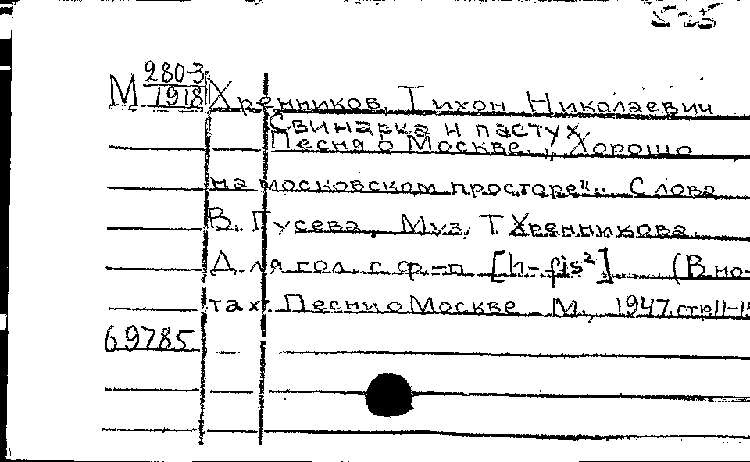 5-25
М 280-3
1918
Хренников, Тихон Николаевич
Свинарка и пастух
Песня о Москве. „Хорошо
на московском просторе"... Слова
В. Гусева, Муз. Т. Хренникова.
Для гол. с ф.-п. [h-fis²] (В но-
тах: Песни о Москве М., 1947. стр 11-1
69785